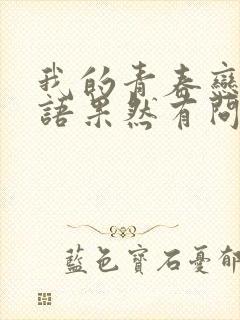 我的青春戀
語果然有問
藍色寶石憂郁